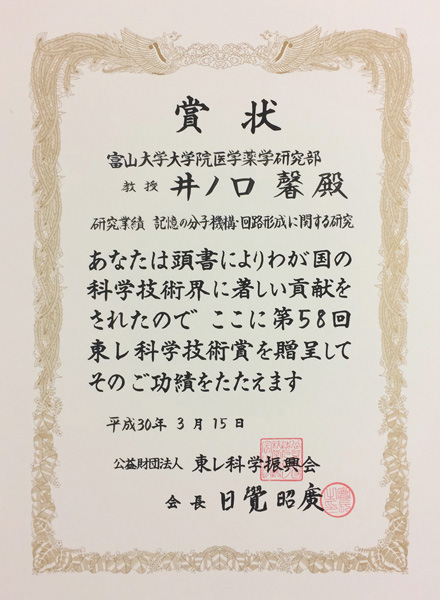 賞状
富山大学大学院医学薬学研究部
教授 井ノ口 馨 殿
研究業績 記憶の分子機構・回路形成に関する研究
あなたは頭書によりわが国の
科学技術界に著しい貢献を
されたので ここに第58回
東レ科学技術賞を贈呈して
そのご功績をたたえます
平成30年 3月15日
公益財団法人 東レ科学振興会
会長 日覺昭廣